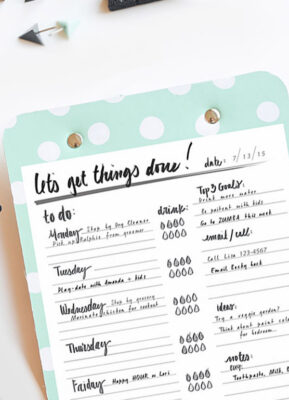 let's get things done!
date: 7/13/15
to do:
drink:
Monday Stop by Dry Cleaner
Pick up Ralphie from groomer
Tuesday
Play-date with Amanda + kids
Wednesday Stop by grocery
Marinate chicken for cookout
Thursday
Friday Happy HOUR w/ Lori
Top 3 Goals:
Drink more water
Be patient with kids
Go to ZUMBA this week
email/call:
Call Lisa 123-4567
Email Becky back
ideas:
Try a veggie garden?
Think about paint color
for bedroom
notes:
Toothpaste, Milk,